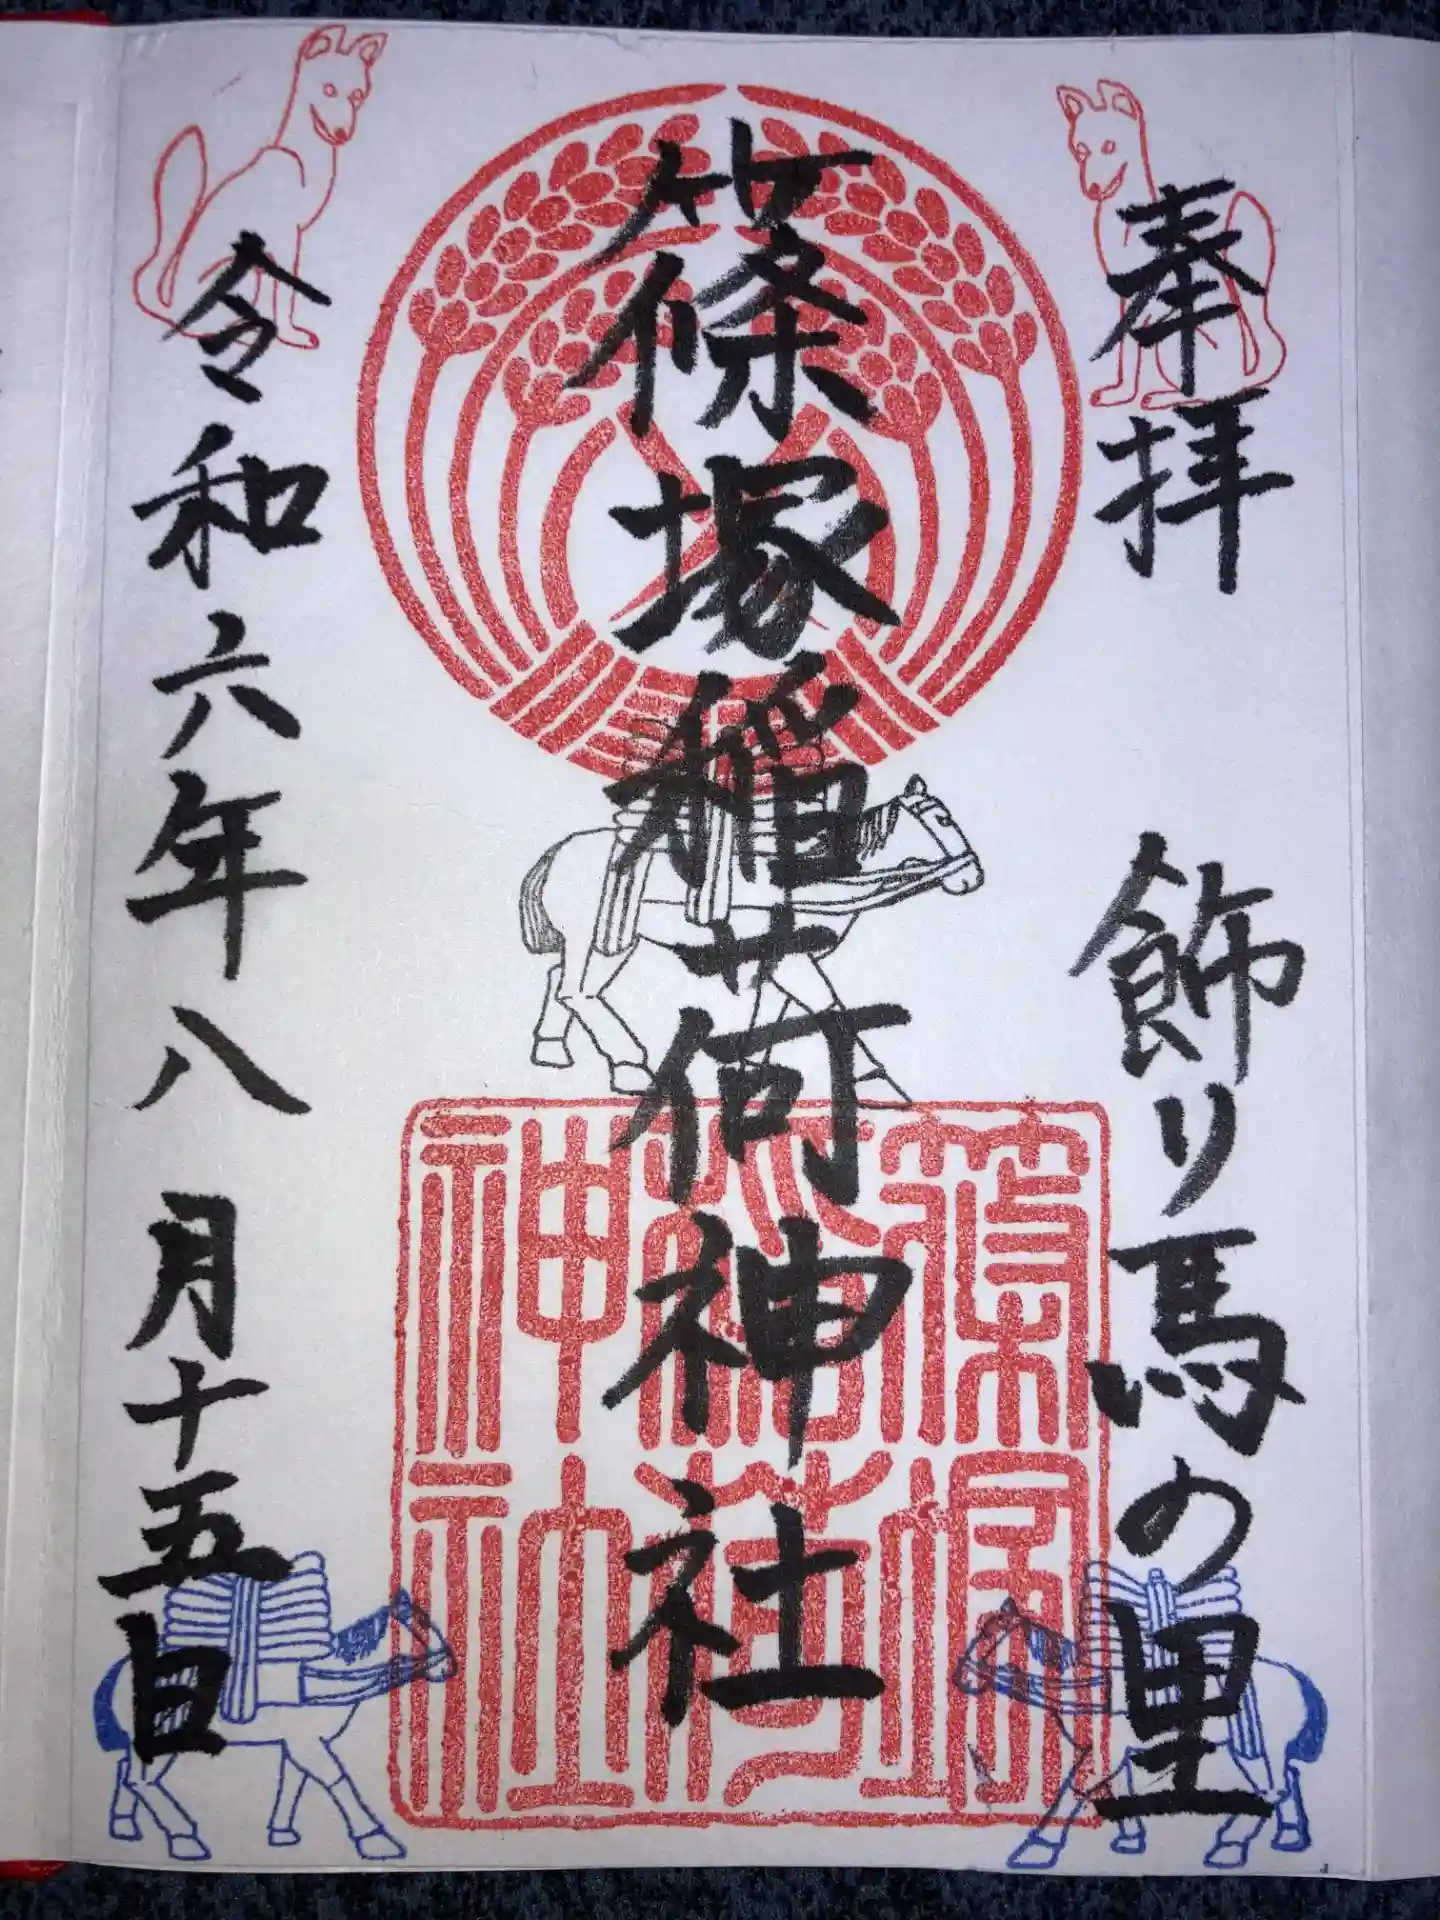 奉拝
飾り馬の里
篠塚稲荷神社
篠塚稲荷神社
令和六年八月十五日